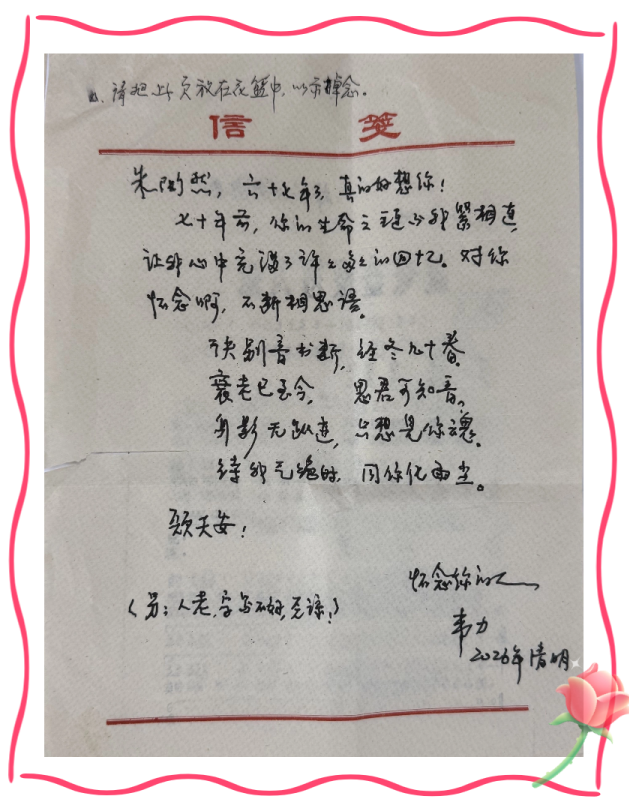 请把此页放在花篮中，以示悼念。
信 笺
然，六十七年了，真的好想你！
七十年前，你的生命之链与我紧相连，
让我心中充满了许之多之的回忆。对你
怀念啊，不断相思语。
诀别音书断，经冬九十春。
衰老已至今，思君可知音。
身影无踪迹，只想见你魂。
待我气绝时，同你化雨尘。
颂天安！
怀念你的人
（另：人老，字写不好，见谅！）
韦力
2026年清明